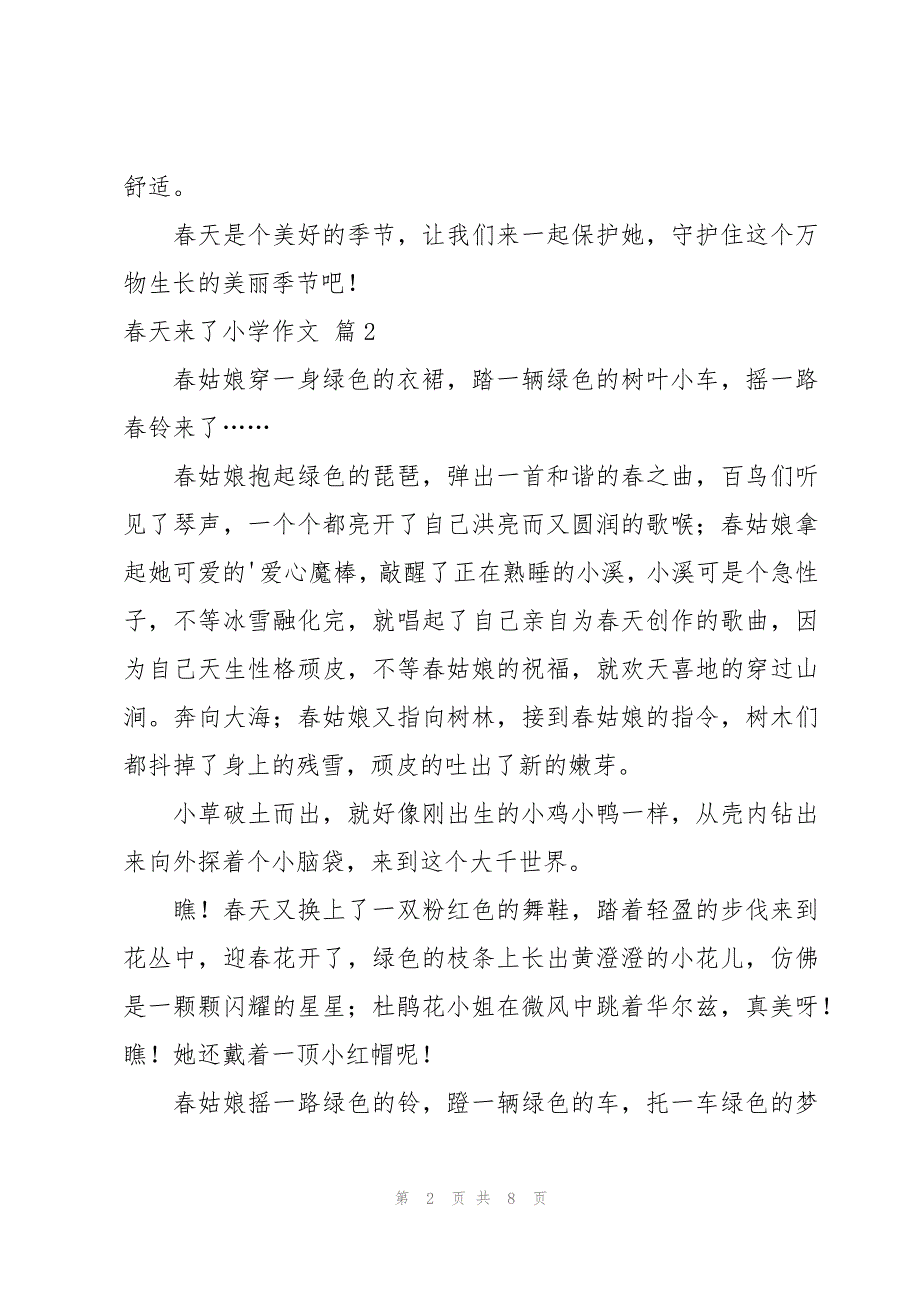 舒适。
春天是个美好的季节，让我们来一起保护她，守护住这个万
物生长的美丽季节吧！
春天来了小学作文 篇2
春姑娘穿一身绿色的衣裙，踏一辆绿色的树叶小车，摇一路
春铃来了……
春姑娘抱起绿色的琵琶，弹出一首和谐的春之曲，百鸟们听
见了琴声，一个个都亮开了自己洪亮而又圆润的歌喉；春姑娘拿
起她可爱的'爱心魔棒，敲醒了正在熟睡的小溪，小溪可是个急性
子，不等冰雪融化完，就唱起了自己亲自为春天创作的歌曲，因
为自己天生性格顽皮，不等春姑娘的祝福，就欢天喜地的穿过山
涧。奔向大海；春姑娘又指向树林，接到春姑娘的指令，树木们
都抖掉了身上的残雪，顽皮的吐出了新的嫩芽。
小草破土而出，就好像刚出生的小鸡小鸭一样，从壳内钻出
来向外探着个小脑袋，来到这个大千世界。
瞧！春天又换上了一双粉红色的舞鞋，踏着轻盈的步伐来到
花丛中，迎春花开了，绿色的枝条上长出黄澄澄的小花儿，仿佛
是一颗颗闪耀的星星；杜鹃花小姐在微风中跳着华尔兹，真美呀！
瞧！她还戴着一顶小红帽呢！
春姑娘摇一路绿色的铃，蹬一辆绿色的车，托一车绿色的梦
第 2 页 共 8 页